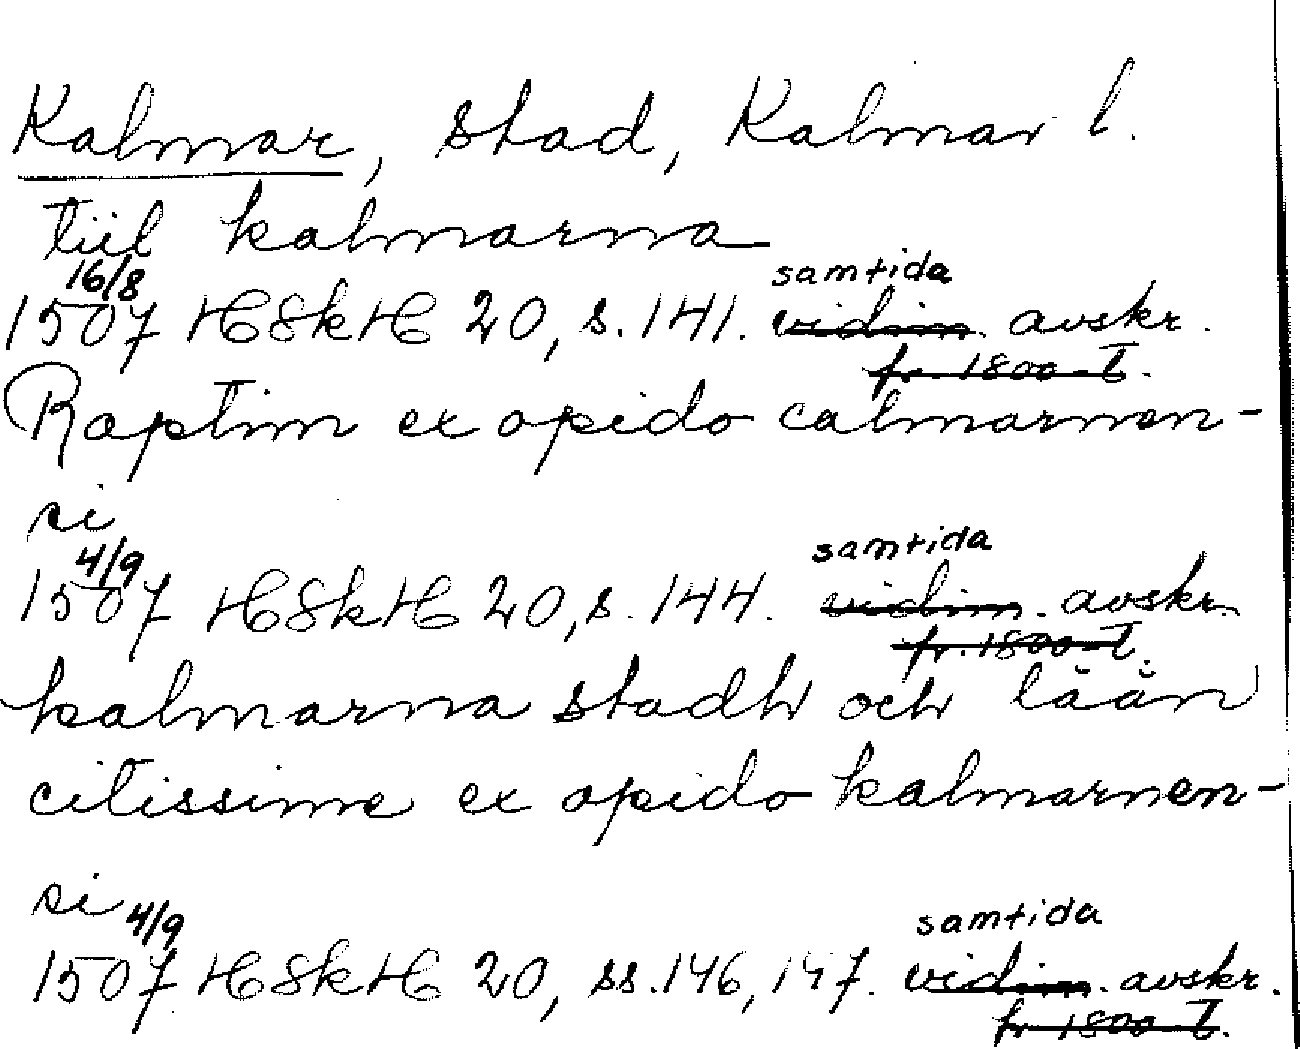 Kalmar, stad, Kalmar l.
tiil kalmarna
16/8 samtida
1507 HSkH 20, s. 141. vidim. avskr.
fr. 1800-t.
Raptim ex opido calmarnen-
si
4/9 samtida
1507 HSkH 20, s. 144. vidim. avskr.
fr. 1800-t.
kalmarna stadh och låån
citissime ex opido kalmarnen-
si
4/9 samtida
1507 HSkH 20, ss. 146, 147. vidim. avskr.
fr. 1800-t.